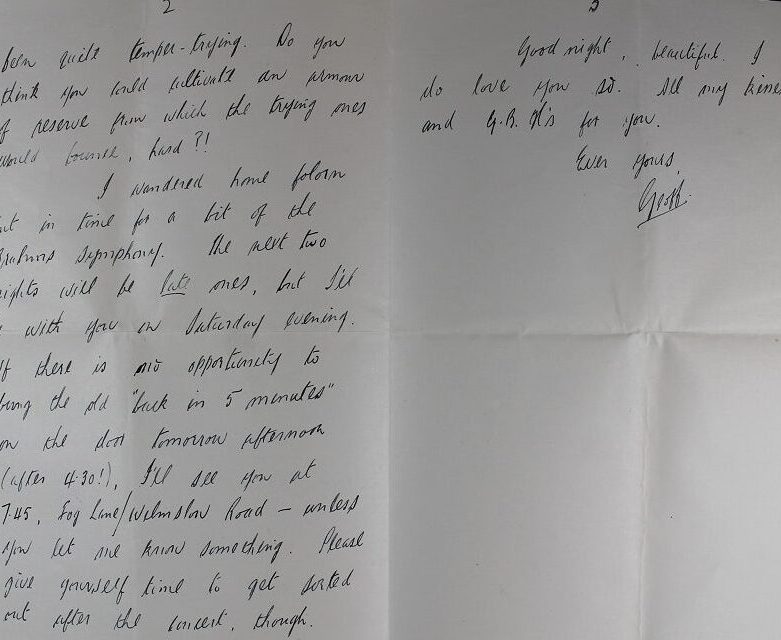 2
been quite temper-trying. Do you
think you could cultivate an armour
of reserve from which the trying ones
would bounce, hard?!
I wandered home folorn
in time for a bit of the
Brahms Symphony. The next two
nights will be late ones, but I'll
with you on Saturday evening.
If there is no opportunity to
bring the old "back in 5 minutes"
on the door tomorrow afternoon
(after 4.30!), I'll see you at
7.45, Fog Lane/Wilmslow Road – unless
you let me know something. Please
give yourself time to get sorted
out after the concert, though.
3
Good night, beautiful. I
do love you so. All my kisses
and G.B.H's for you.
Ever yours,
Geoff.